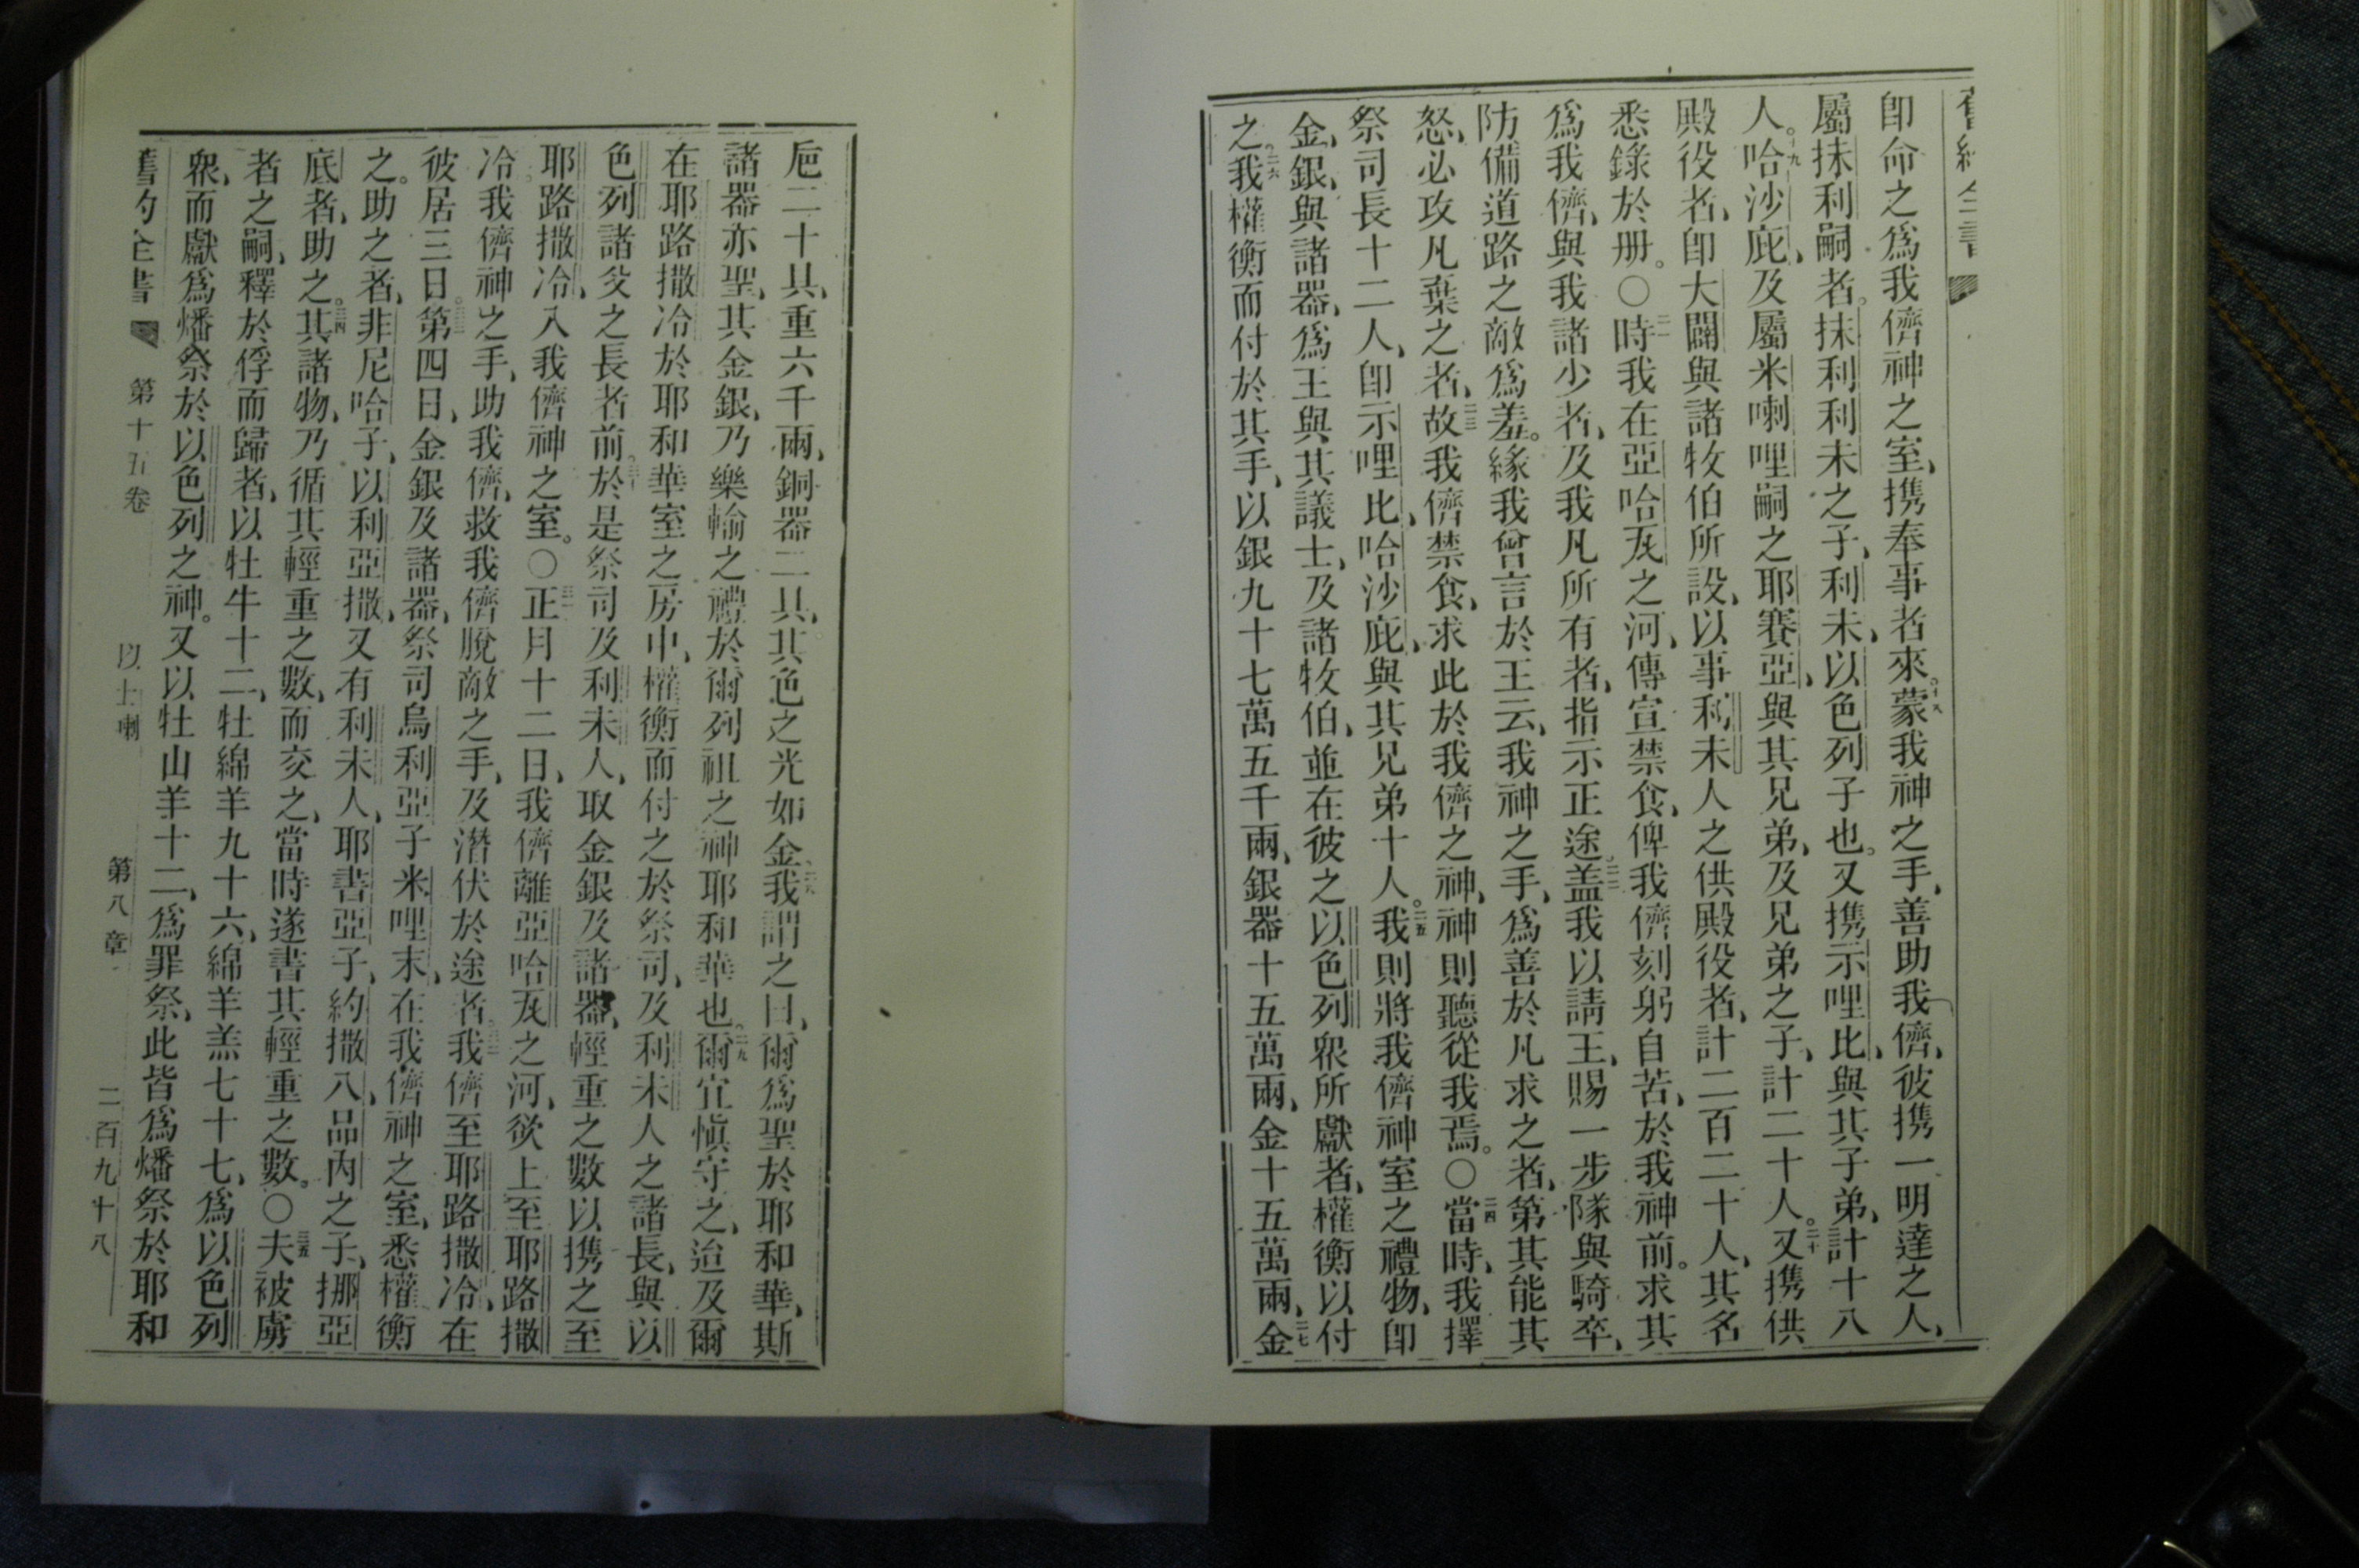 舊約全書
卽命之爲我儕神之室、携奉事者來。十八蒙我神之手、善助我儕、彼携一明達之人、
屬抹利嗣者。抹利利未之子、利未、以色列子也。又携示哩比、與其子弟、計十八
人。十九哈沙庇、及屬米喇哩嗣之耶賽亞、與其兄弟、及兄弟之子、計二十人。二十又携供
殿役者、卽大闢與諸牧伯所設、以事利未人之供殿役者、計二百二十人、其名
悉錄於册。○二一時我在亞哈瓦之河、傳宣禁食、俾我儕刻躬自苦、於我神前。求其
爲我儕、與我諸少者、及我凡所有者、指示正途。二二盖我以請王、賜一步隊與騎卒、
防備道路之敵爲羞。緣我曾言於王云、我神之手、爲善於凡求之者、第其能其
怒、必攻凡棄之者、二三故我儕禁食、求此於我儕之神、神則聽從我焉。○二四當時、我擇
祭司長十二人、卽示哩比、哈沙庇、與其兄弟十人。二五我則將我儕神室之禮物、卽
金、銀、與諸器、爲王與其議士、及諸牧伯、並在彼之以色列衆所獻者、權衡以付
之。二六我權衡而付於其手、以銀九十七萬五千兩、銀器十五萬兩、金十五萬兩、二七金
巵二十具、重六千兩、銅器二具、其色之光如金、二八我謂之曰、爾爲聖於耶和華、斯
諸器亦聖、其金銀、乃樂輸之禮於爾列祖之神耶和華也。二九爾宜愼守之、迨及爾
在耶路撒冷於耶和華室之房中、權衡而付之於祭司、及利未人之諸長、與以
色列諸父之長者前。三十於是祭司及利未人、取金銀及諸器、輕重之數以携之至
耶路撒冷、入我儕神之室。○三一正月十二日、我儕離亞哈瓦之河、欲上至耶路撒
冷。我儕神之手、助我儕、救我儕脫敵之手、及潛伏於途者。三二我儕至耶路撒冷、在
彼居三日。三三第四日、金銀及諸器、祭司烏利亞子米哩末、在我儕神之室、悉權衡
之。助之者、非尼哈子、以利亞撒、又有利未人、耶書亞子、約撒八、品內之子、挪亞
底者、助之。三四其諸物、乃循其輕重之數、而交之、當時遂書其輕重之數。○三五夫被虜
者之嗣、釋於俘而歸者、以牡牛十二、牡綿羊九十六、綿羊羔七十七、爲以色列
衆、而獻爲燔祭於以色列之神。又以牡山羊十二、爲罪祭、此皆爲燔祭於耶和
舊約全書 第十五卷 以士喇 第八章 二百九十八